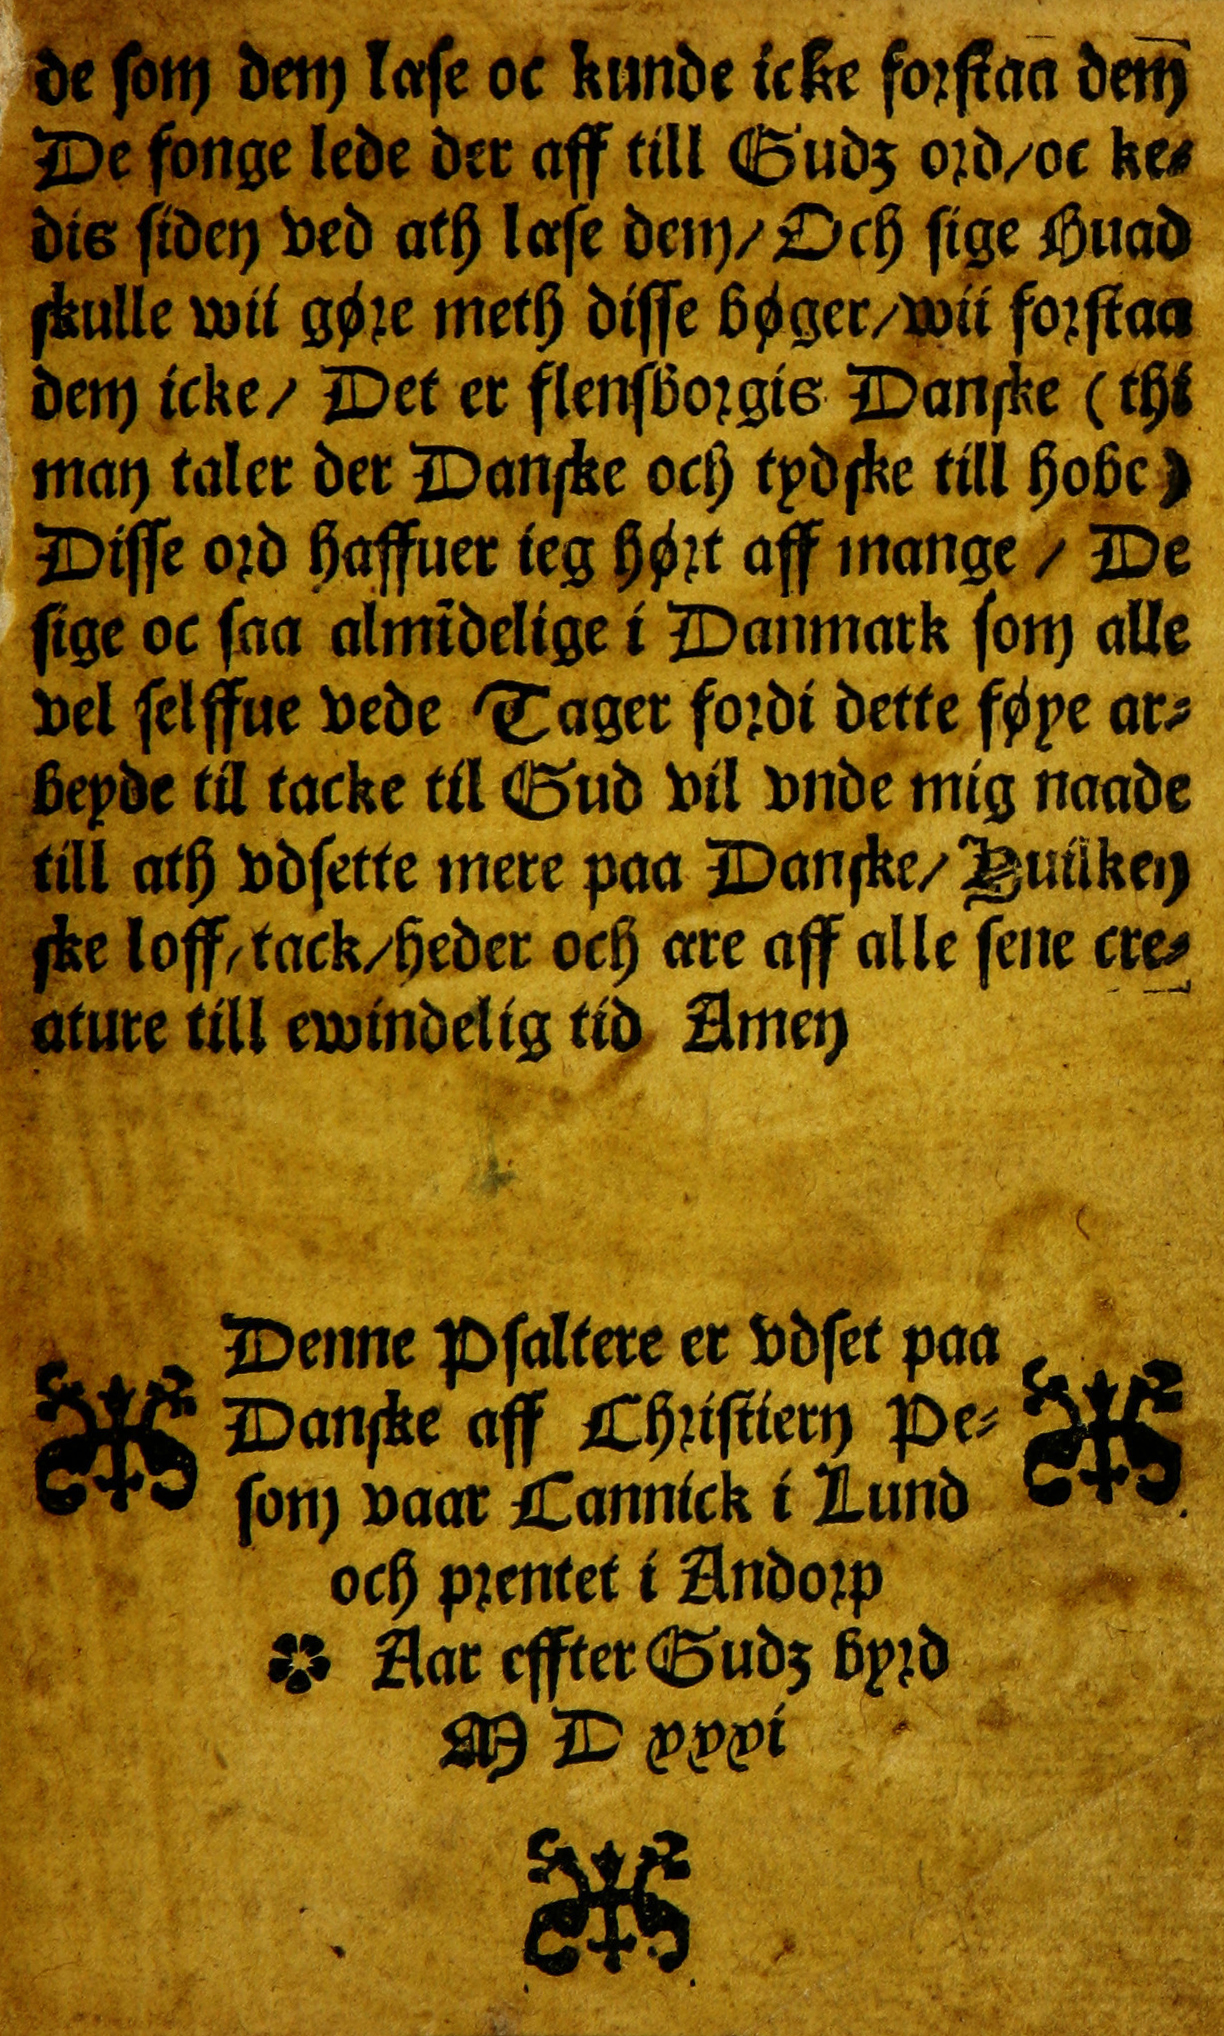 de som dem læse oc kunde icke forstaa dem
De fonge lede der aff till Gudz ord/oc ke⸗
dis siden ved ath læse dem/Och sige Huad
skulle wii gøre meth disse bøger/wii forstaa
dem icke/ Det er flensborgis Danske (thi
man taler der Danske och tydske till hobe)
Disse ord haffuer ieg hørt aff mange / De
sige oc saa almīdelige i Danmark som alle
vel selffue vede Tager fordi dette føye ar⸗
beyde til tacke til Gud vil vnde mig naade
till ath vdsette mere paa Danske/Huilken
ske loff/tack/heder och ære aff alle sene cre⸗
ature till ewindelig tid Amen
Denne Psaltere er vdset paa
Danske aff Christiern Pe⸗
som vaar Cannick i Lund
och prentet i Andorp
Aar effter Gudz byrd
M D xxxi